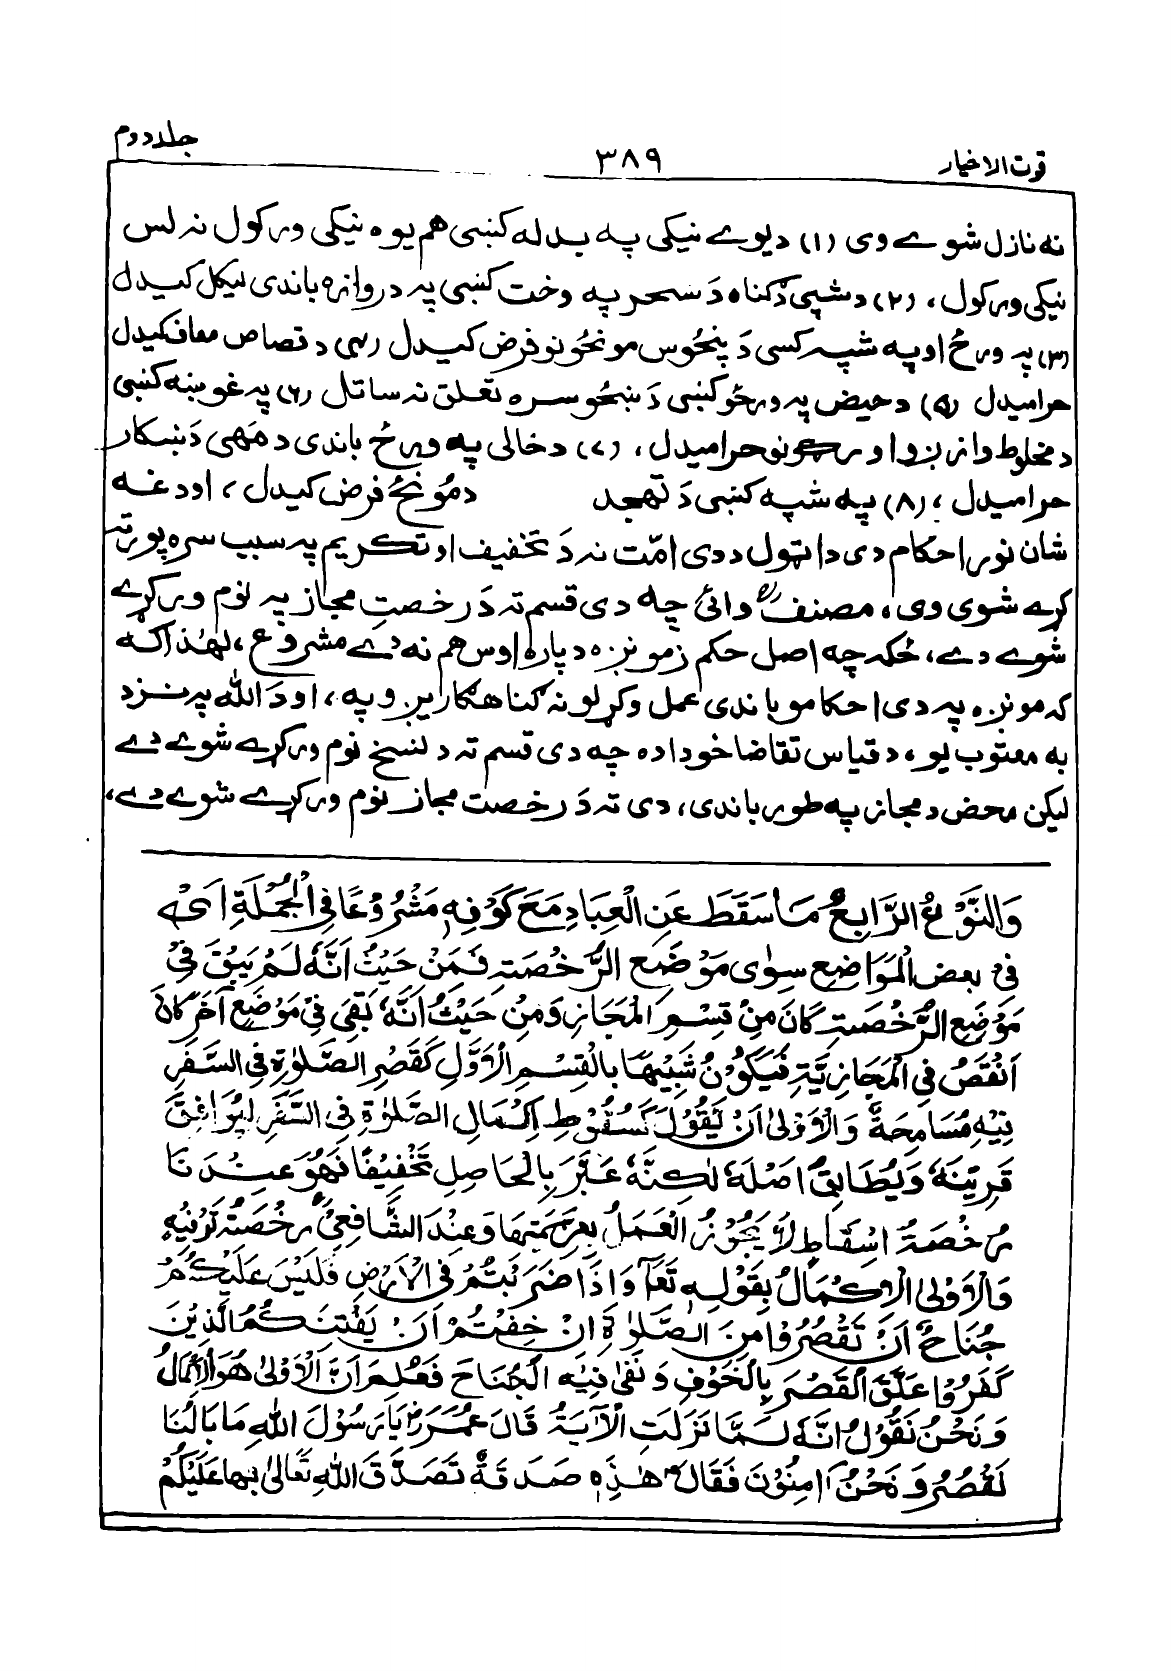 قوت الاخیار ۳۸۹ جلد دوم
نه نازل شوے وی (۱) د یوے نیکی په بدله کښی هم یوه نیکی ورکول نه لس
نیکی ورکول، (۲) د شپې د ګناه دَ سحر په وخت کښی په دروازه باندی لیکل کیدل
(۳) په ورځ او په شپه کښی دَ پنځوس مونځونو فرض کیدل (۴) د قصاص معاف کیدل
حرامیدل (۵) د حیض په ورځو کښی دَ ښځو سره تعلق نه ساتل (۶) په غوښه کښی
د مخلوط وازېزو او رګونو حرامیدل، (۷) د خالی په ورځ باندی د مَهی دَ ښکار
حرامیدل، (۸) په شپه کښی دَ تهجد د مُونځ فرض کیدل، او دغه
شان نور احکام دی دا ټول د دی امّت نه دَ تخفیف او تکریم په سبب سره پورته
کړے شوی وی، مصنفؒ وائی چه دی قسم ته دَ رخصتِ مجاز په نوم ورکړے
شوے دے، ځکه چه اصل حکم زمونږه دپاره اوس هم نه دے مشروع، لهٰذا که
که مونږه په دی احکامو باندی عمل وکړلو نه ګناهګاریږو په، او دَ الله په نزد
به معتوب یو، د قیاس تقاضا خو دا ده چه دی قسم ته د نسخ نوم ورکړے شوے دے
لیکن محض د مجاز په طور باندی، دی ته دَ رخصت مجاز نوم ورکړے شوے دے،
وَالنَّوْعُ الرَّابِعُ مَا سَقَطَ عَنِ الْعِبَادِ مَعَ كَوْنِهٖ مَشْرُوْعًا فِي الْجُمْلَةِ اَيْ
فِيْ بعض الْمَوَاضِعِ سِوٰى مَوْضَعِ الرُّخْصَتِہ فَمِنْ حَيْثُ اَنَّهٗ لَمْ يَبْقَ فِيْ
مَوْضَعِ الرُّخْصَتِہ كَانَ مِنْ قِسْمِ الْمَجَازِ وَمِنْ حَيْثُ اَنَّهٗ بَقِىَ فِيْ مَوْضَعٍ اٰخَرَ كَانَ
اَنْقَصُ فِي الْمَجَازِيَّةِ فَيَكُوْنُ شَبِيْهًا بِالْقِسْمِ الْاَوَّلِ كَقَصْرِ الصَّلٰوةِ فِي السَّفَرِ
فِيْهِ مُسَامَحَةٌ وَالْاَوْلٰى اَنْ يَقُوْلَ كَسُقُوْطِ اِكْمَالِ الصَّلٰوةِ فِي السَّفَرِ لِيُوَافِقَ
قَرِيْنَهٗ وَيُطَابِقُ اَصْلَهٗ لٰكِنَّهٗ عَبَّرَ بِالْحَاصِلِ تَخْفِيْفًا فَهُوَ عِنْدَنَا
رُخْصَةُ اِسْقَاطٍ لَا يَجُوْزُ الْعَمَلُ بِعَزِيْمَتِهَا وَعِنْدَ الشَّافِعِيِّؒ رُخْصَةُ تَرْفِيْهٍ
وَالْاَوْلٰى الْاِكْمَالُ بِقَوْلِهٖ تَعَالٰى وَاِذَا ضَرَبْتُمْ فِي الْاَرْضِ فَلَيْسَ عَلَيْكُمْ
جُنَاحٌ اَنْ تَقْصُرُوْا مِنَ الصَّلٰوةِ اِنْ خِفْتُمْ اَنْ يَفْتِنَكُمُ الَّذِيْنَ
كَفَرُوْا عَلَّقَ الْقَصْرَ بِالْخَوْفِ وَنَفٰى فِيْهِ الْجُنَاحَ فَعُلِمَ اَنَّ الْاَوْلٰى هُوَ الْاِكْمَالُ
وَنَحْنُ نَقُوْلُ اِنَّهٗ لَمَّا نَزَلَتِ الْاٰيَةُ قَالَ عُمَرُؓ يَا رَسُوْلَ اللهِ مَا بَالُنَا
نَقْصُرُ وَنَحْنُ اٰمِنُوْنَ فَقَالَؑ هٰذِهٖ صَدَقَةٌ تَصَدَّقَ اللهُ تَعَالٰى بِهَا عَلَيْكُمْ